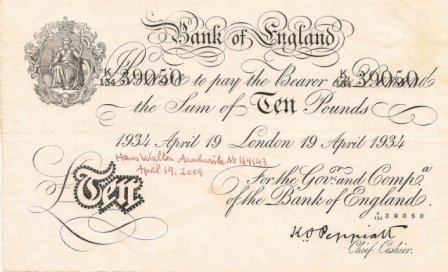 Bank of England
K/134 39050 K/134 39050
I Promise to pay the Bearer on Demand
the Sum of Ten Pounds
1934 April 19 London 19 April 1934
Hans Walter No 164143
April 19, 2009
Ten
For the Govr. and Compa.
of the Bank of England.
K/134 39050
K.O. Peppiatt
Chief Cashier.